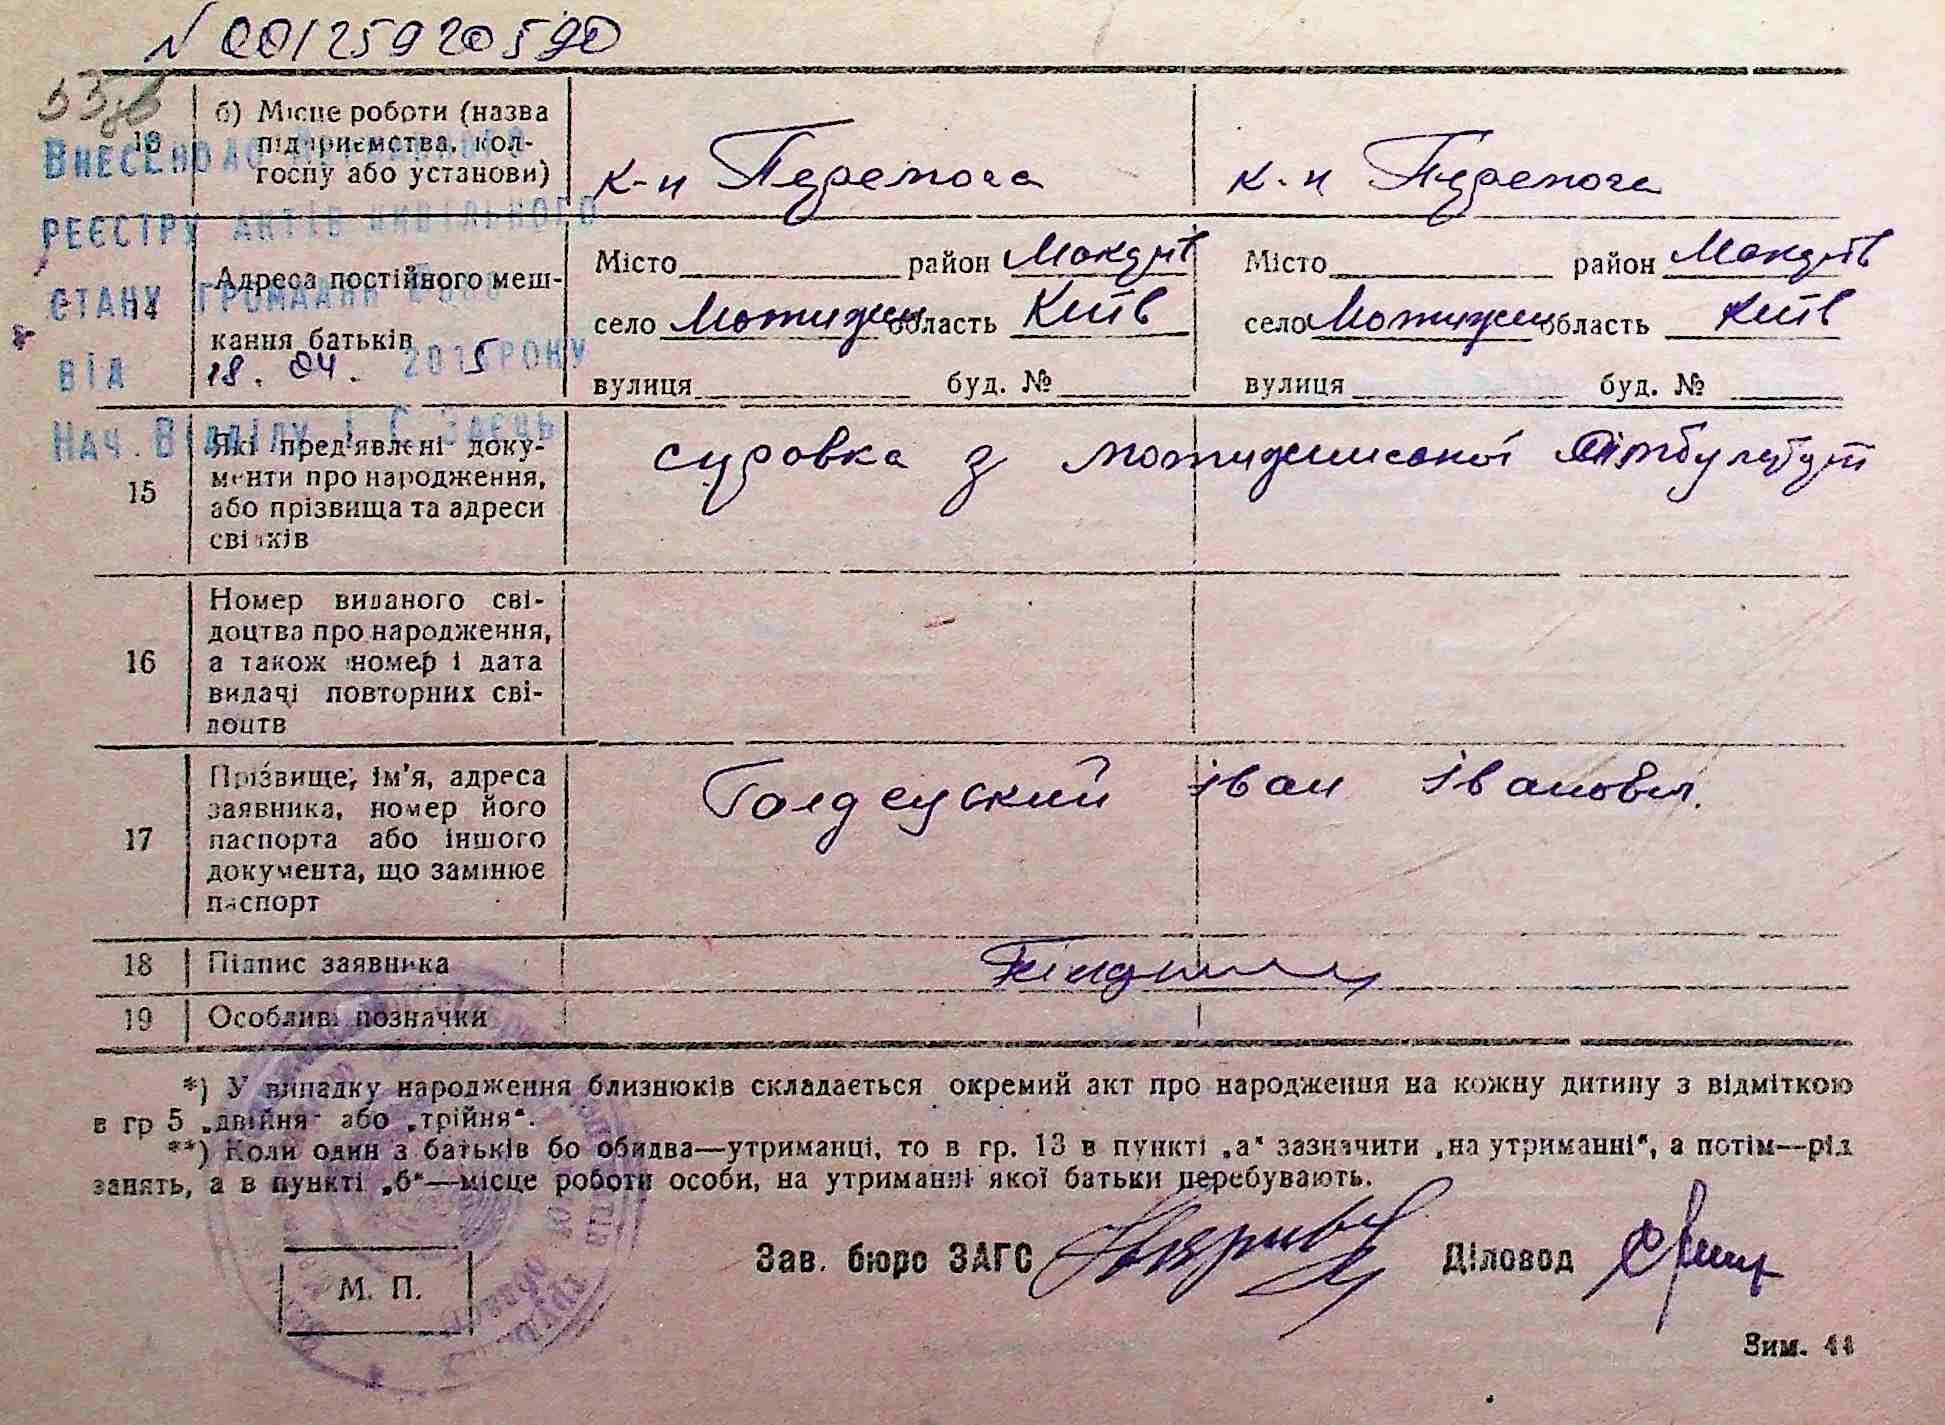 N 00125920590
13 б) Місце роботи (назва підприємства, колгоспу або установи)
к-п Перемога к-п Перемога
ВНЕСЕНО ДО ДЕРЖАВНОГО
РЕЄСТРУ АКТІВ ЦИВІЛЬНОГО
СТАНУ ГРОМАДЯН
ВІД 18. 04. 2015 РОКУ
НАЧ. ВІДДІЛУ І. С. ЗАЄЦЬ
14 Адреса постійного мешкання батьків
Місто район Макарів Місто район Макарів
село Мотижин область Київ село Мотижин область Київ
вулиця буд. № вулиця буд. №
15 Які пред'явлені документи про народження, або прізвища та адреси свідків
справка з мотижинської
16 Номер виданого свідоцтва про народження, а також номер і дата видачі повторних свідоцтв
17 Прізвище, ім'я, адреса заявника, номер його паспорта або іншого документа, що замінює паспорт
Іван Іванович.
18 Підпис заявника
19 Особливі позначки
*) У випадку народження близнюків складається окремий акт про народження на кожну дитину з відміткою
в гр 5 „двійня" або „трійня".
**) Коли один з батьків бо обидва—утриманці, то в гр. 13 в пункті „а" зазначити „на утриманні", а потім—рід
занять, а в пункті „б"—місце роботи особи, на утриманні якої батьки перебувають.
Зав. бюро ЗАГС Діловод
М. П.
Зим. 44